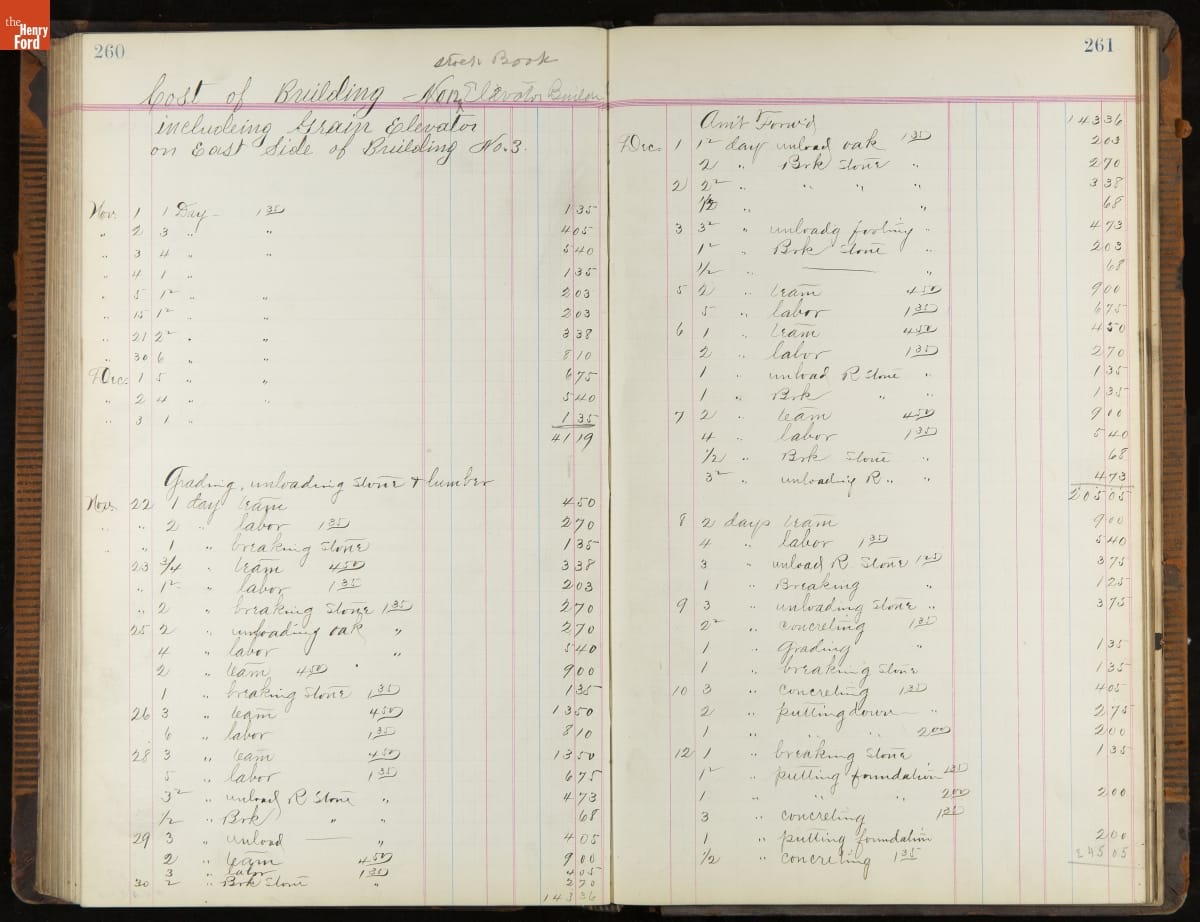 the Henry Ford
260
Stock Book
Cost of Building Non Elevator Buildn
includeing Grain Elevator
on East Side of Building No. 3.
Nov. 1 1 Day - 1 35 1 35
" 2 3 " " 4 05
" 3 4 " " 5 40
" 4 1 " 1 35
" 5 1 2 " " 2 03
" 15 1 2 " " 2 03
" 21 2 2 " " 3 38
" 30 6 " " 8 10
Dec. 1 5 " " 6 75
" 2 4 " " 5 40
" 3 1 " 1 35
41 19
Grading, unloading Stone & lumber
Nov. 22 1 day team 4 50
" " 2 " labor 1 35 2 70
" " 1 " breaking Stone 1 35
23 3/4 " team 4 50 3 38
" 1 2 " labor 1 35 2 03
" 2 " breaking Stone 1 35 2 70
25 2 " unloading oak " 2 70
4 " labor " 5 40
2 " team 4 50 " 9 00
1 " breaking Stone 1 35 1 35
26 3 " team 4 50 13 50
6 " labor 1 35 8 10
28 3 " team 4 50 13 50
5 " labor 1 35 6 75
3 2 " unload R Stone " 4 73
1/2 " Brk " " 68
29 3 " unload — " 4 05
2 " team 4 50 9 00
3 " labor 1 35 4 05
30 2 " Brk Stone " 2 70
143 36
261
Am't Forw'd 143 36
Dec. 1 1 2 day unload oak 1 35 2 03
2 " Brk Stone " 2 70
2 2 2 " " " " 3 38
1/2 " " 68
3 3 2 " unloadg footing " 4 73
1 2 " Brk Stone " 2 03
1/2 " — " 68
5 2 " team 4 50 9 00
5 " labor 1 35 6 75
6 1 " team 4 50 4 50
2 " labor 1 35 2 70
1 " unload R Stone " 1 35
1 " Brk " " 1 35
7 2 " team 4 50 9 00
4 " labor 1 35 5 40
1/2 " Brk Stone " 68
3 2 " unloading R " " 4 73
205 05
8 2 days team 9 00
4 " labor 1 35 5 40
3 " unload R Stone 1 25 3 75
1 " Breaking " 1 25
9 3 " unloading Stone " 3 75
2 2 " concreting 1 35
1 " Grading " 1 35
1 " breaking Stone 1 35
10 3 " concreting 1 35 4 05
2 " putting down — " 2 75
1 " " " 2 00 2 00
12 1 " breaking Stone 1 35
1 2 " putting foundation 1 35
1 " " " 2 00 2 00
3 " concreting 1 35
1 " putting foundation 2 00
1/2 " concreting 1 35 245 05